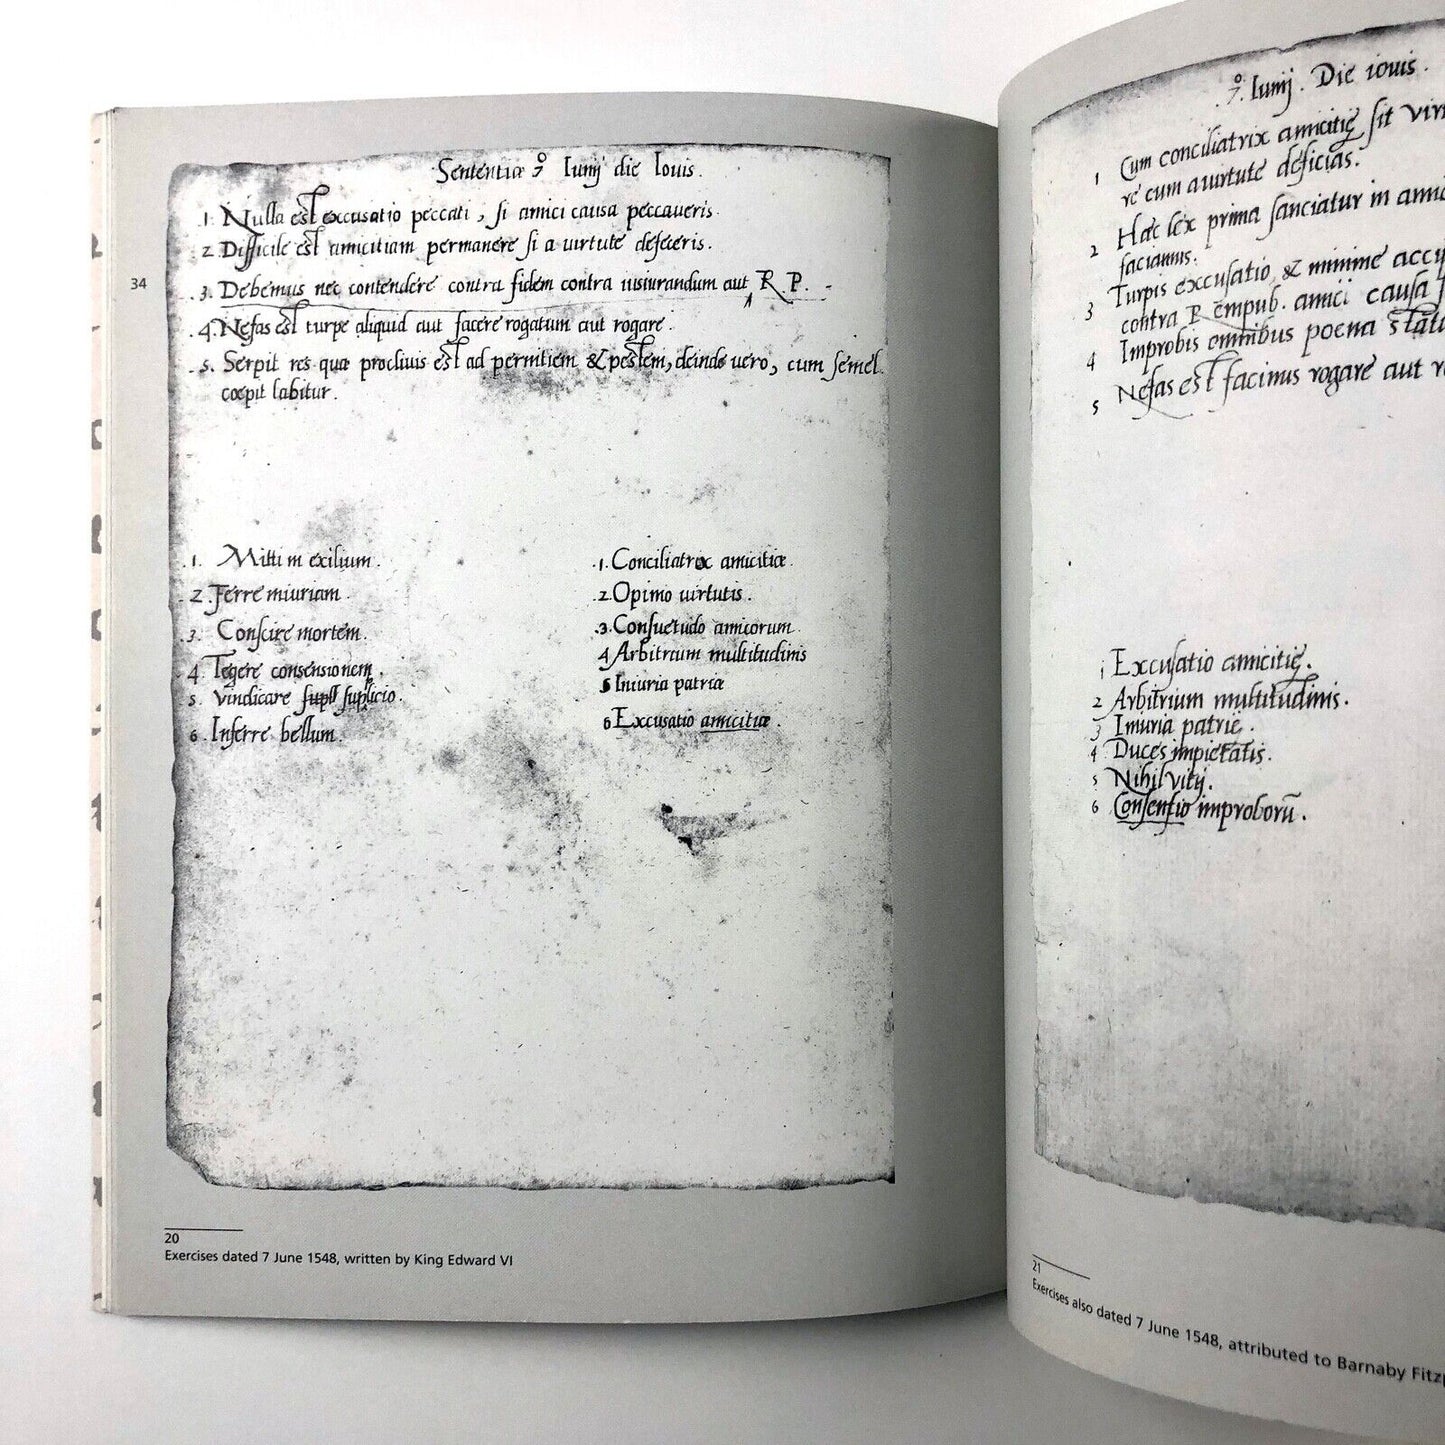 34
Sententiæ 7° Iunij die Iouis.
.1. Nulla est excusatio peccati, si amici causa peccaueris.
.2. Difficile est amicitiam permanere si a uirtute defeceris.
.3. Debemus nec contendere contra fidem contra iusiurandum aut R. P.
.4. Nefas est turpe aliquid aut facere rogatum aut rogare.
.5. Serpit res quæ procliuis est ad pernitiem & pestem, deinde uero, cum semel
cœpit labitur.
.1. Mitti in exilium.
.2. Ferre iniuriam.
.3. Conscire mortem.
.4. Tegere consensionem.
5. vindicare supli suplicio.
6. Inferre bellum.
.1. Conciliatrix amicitiæ.
.2. Opimo uirtutis.
.3. Consuetudo amicorum.
4. Arbitrium multitudinis
5 Iniuria patriæ
6 Excusatio amicitiæ.
20
Exercises dated 7 June 1548, written by King Edward VI
.7°. Iunij. Die iouis.
1 Cum conciliatrix amicitię sit
re cum a uirtute deficias.
2 Hæc lex prima sanciatur in
faciamus.
3 Turpis excusatio & minime
contra R empub. amici causa
4 Improbis omnibus poena
5 Nefas est facinus rogare aut
1 Excusatio amicitię.
2 Arbitrium multitudinis.
3 Iniuria patrię.
4 Duces impietatis.
5 Nihil vitij.
6 Consensio improborū.
21
Exercises also dated 7 June 1548, attributed to Barnaby